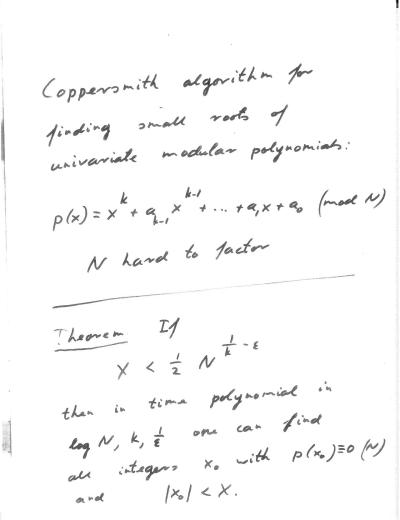 Coppersmith algorithm for
finding small roots of
univariate modular polynomials:
p(x) = x^k + a_{k-1} x^{k-1} + ... + a_1 x + a_0 (mod N)
N hard to factor
Theorem If
X < 1/2 N^{1/k - ε}
then in time polynomial in
log N, k, 1/ε one can find
all integers x_0 with p(x_0)≡0 (N)
and |x_0| < X.